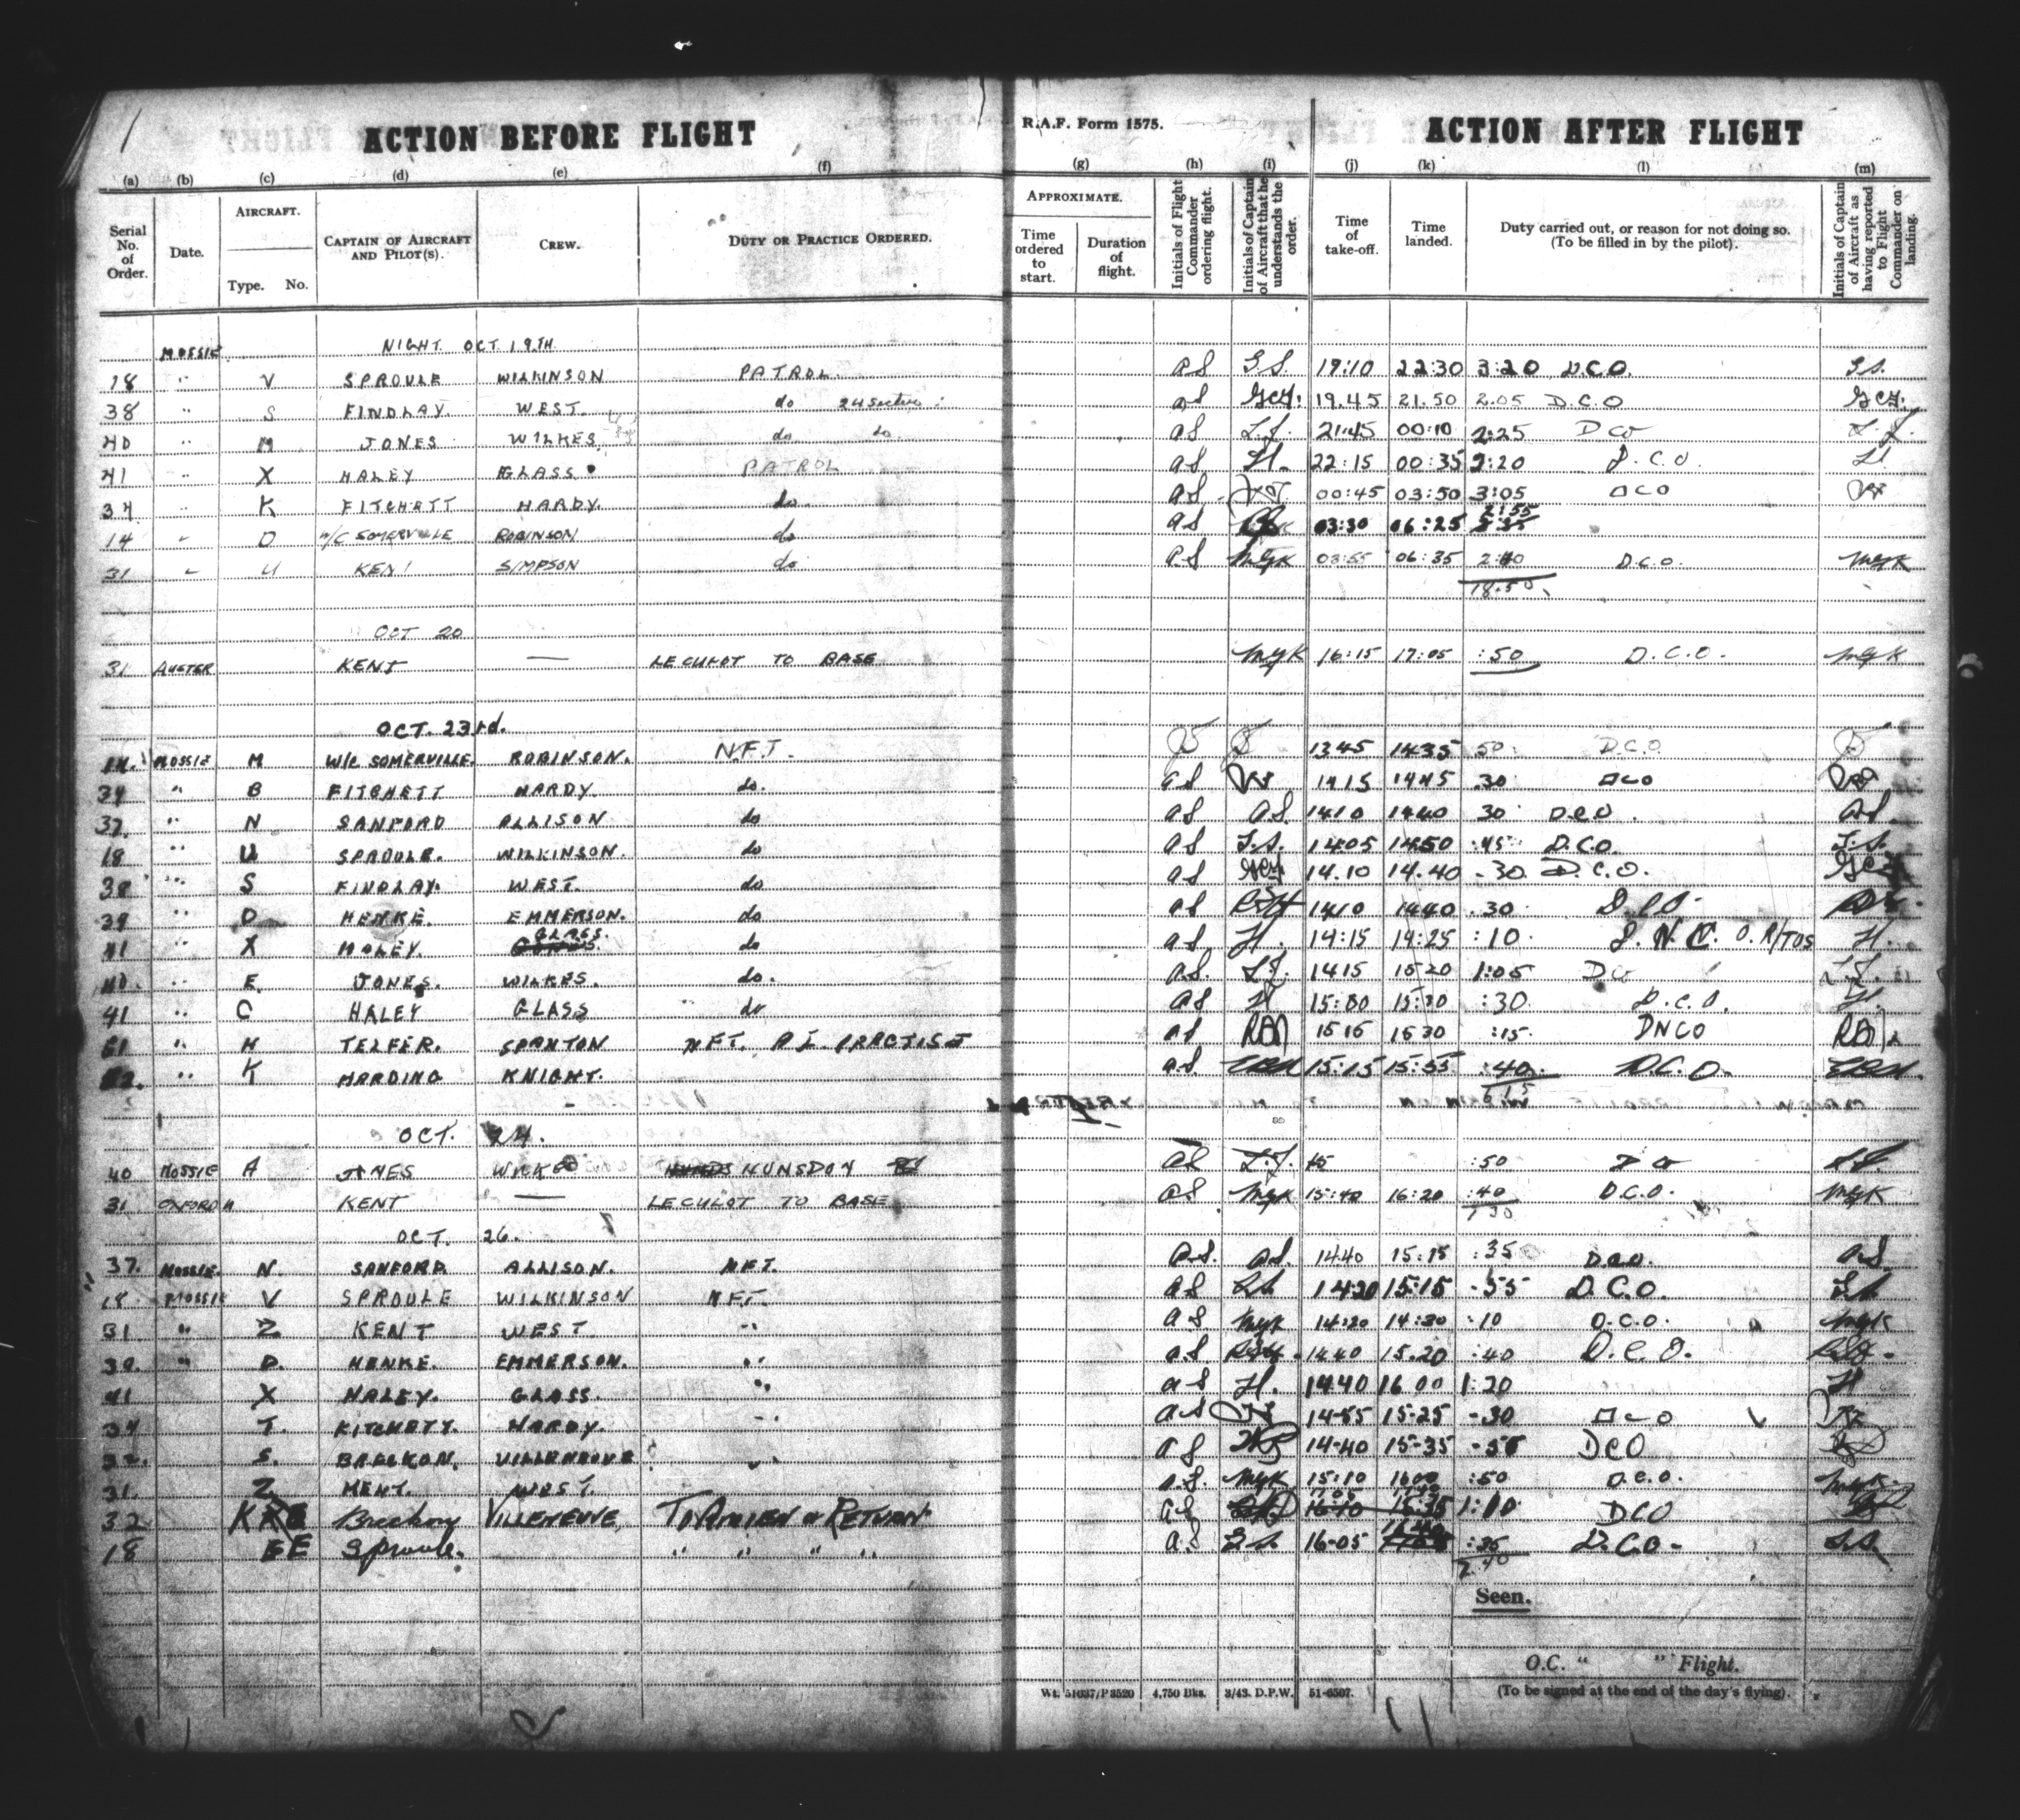 ACTION BEFORE FLIGHT R.A.F. Form 1575. ACTION AFTER FLIGHT
(a) (b) (c) (d) (e) (f) (g) (h) (i) (j) (k) (l) (m)
Serial No. of Order. Date. AIRCRAFT. Type. No. CAPTAIN OF AIRCRAFT AND PILOT(S). CREW. DUTY OR PRACTICE ORDERED. APPROXIMATE. Time ordered to start. Duration of flight. Initials of Flight Commander ordering flight. Initials of Captain of Aircraft that he understands the order. Time of take-off. Time landed. Duty carried out, or reason for not doing so. (To be filled in by the pilot). Initials of Captain of Aircraft as having reported to Flight Commander on landing.
MOSSIE NIGHT OCT 19TH
18 " V SPROULE WILKINSON PATROL. as 19:10 22:30 3:20 D.C.O.
38 " S FINDLAY WEST. do as 19.45 21.50 2.05 D.C.O
40 " M JONES WILKES do do as L.J. 21:45 00:10 2:25 DCO L.J.
41 " X HALEY GLASS PATROL as H. 22:15 00:35 2:20 D.C.O. H
34 " K FITCHETT HARDY. do as 00:45 03:50 3:05 DCO
14 " O W/C SOMERVILLE ROBINSON do as 03:30 06:25 2:55
31 " U KENT SIMPSON do as MGK 03:55 06:35 2:40 D.C.O. MGK
18.50
OCT 20
31 AUSTER KENT — LE CULOT TO BASE MGK 16:15 17:05 :50 D.C.O. MGK
OCT. 23rd.
14. MOSSIE M W/C SOMERVILLE ROBINSON. N.F.T. 1345 1435 50 D.C.O.
34 " B FITCHETT HARDY. do. as 1415 1445 .30 DCO
37. " N SANFORD ALLISON do as as. 1410 1440 30 DCO. as.
18 " U SPROULE. WILKINSON. do as 1405 1450 :45 D.C.O.
38 " S FINDLAY. WEST. do as 14.10 14.40 -30 D.C.O.
39 " D HENKE. EMMERSON. do as 1410 1440 .30 D.C.O.
41 " X HALEY. GLASS. do as H. 14:15 14:25 :10 D.N.C.O. R/TOS H.
40. " E. JONES. WILKES. do. as. L.J. 1415 1520 1:05 DCO L.J.
41 " C HALEY GLASS do as H 15:00 15:30 :30 D.C.O. H.
61 " H TELFER. SPANTON N.F.T. A I. PRACTISE as 1515 1530 :15. DNCO
" K HARDING KNIGHT. as 15:15 15:55 :40 D.C.O.
OCT. 24.
40 MOSSIE A JONES WILKES HUNSDON as L.J. :50 DCO
31. OXFORD KENT — LE CULOT TO BASE as MGK 15:40 16:20 :40 D.C.O. MGK
1 30
OCT. 26.
37. MOSSIE. N. SANFORD ALLISON. N.F.T. as. as. 1440 15:15 :35 DCO. as.
18 MOSSIE V SPROULE WILKINSON N.F.T. as 1420 15:15 -55 D.C.O.
31. " Z KENT WEST. " as MGK 14:20 14:30 :10 D.C.O. MGK
39. " D. HENKE. EMMERSON. " as 1440 15.20 :40 D.C.O.
41 X HALEY. GLASS. " as H. 1440 16 00 1:20 H
34 T. FITCHETT. HARDY. " as 14-55 15-25 -30 DCO
32. S. BRECKON. VILLENEUVE " as 14-40 15-35 DCO
31. Z KENT. WEST. as. MGK 15:10 1600 :50 D.C.O. MGK
32 K Breckon VILLENEUVE To Amien & Return as 1:10 DCO
18 EE Sproule. " " " " as 16-05 :35 D.C.O.
2.40
Seen.
O.C. " " Flight.
Wt. 51037/P3520 4,750 Bks. 3/43. D.P.W. 51-6507. (To be signed at the end of the day's flying).